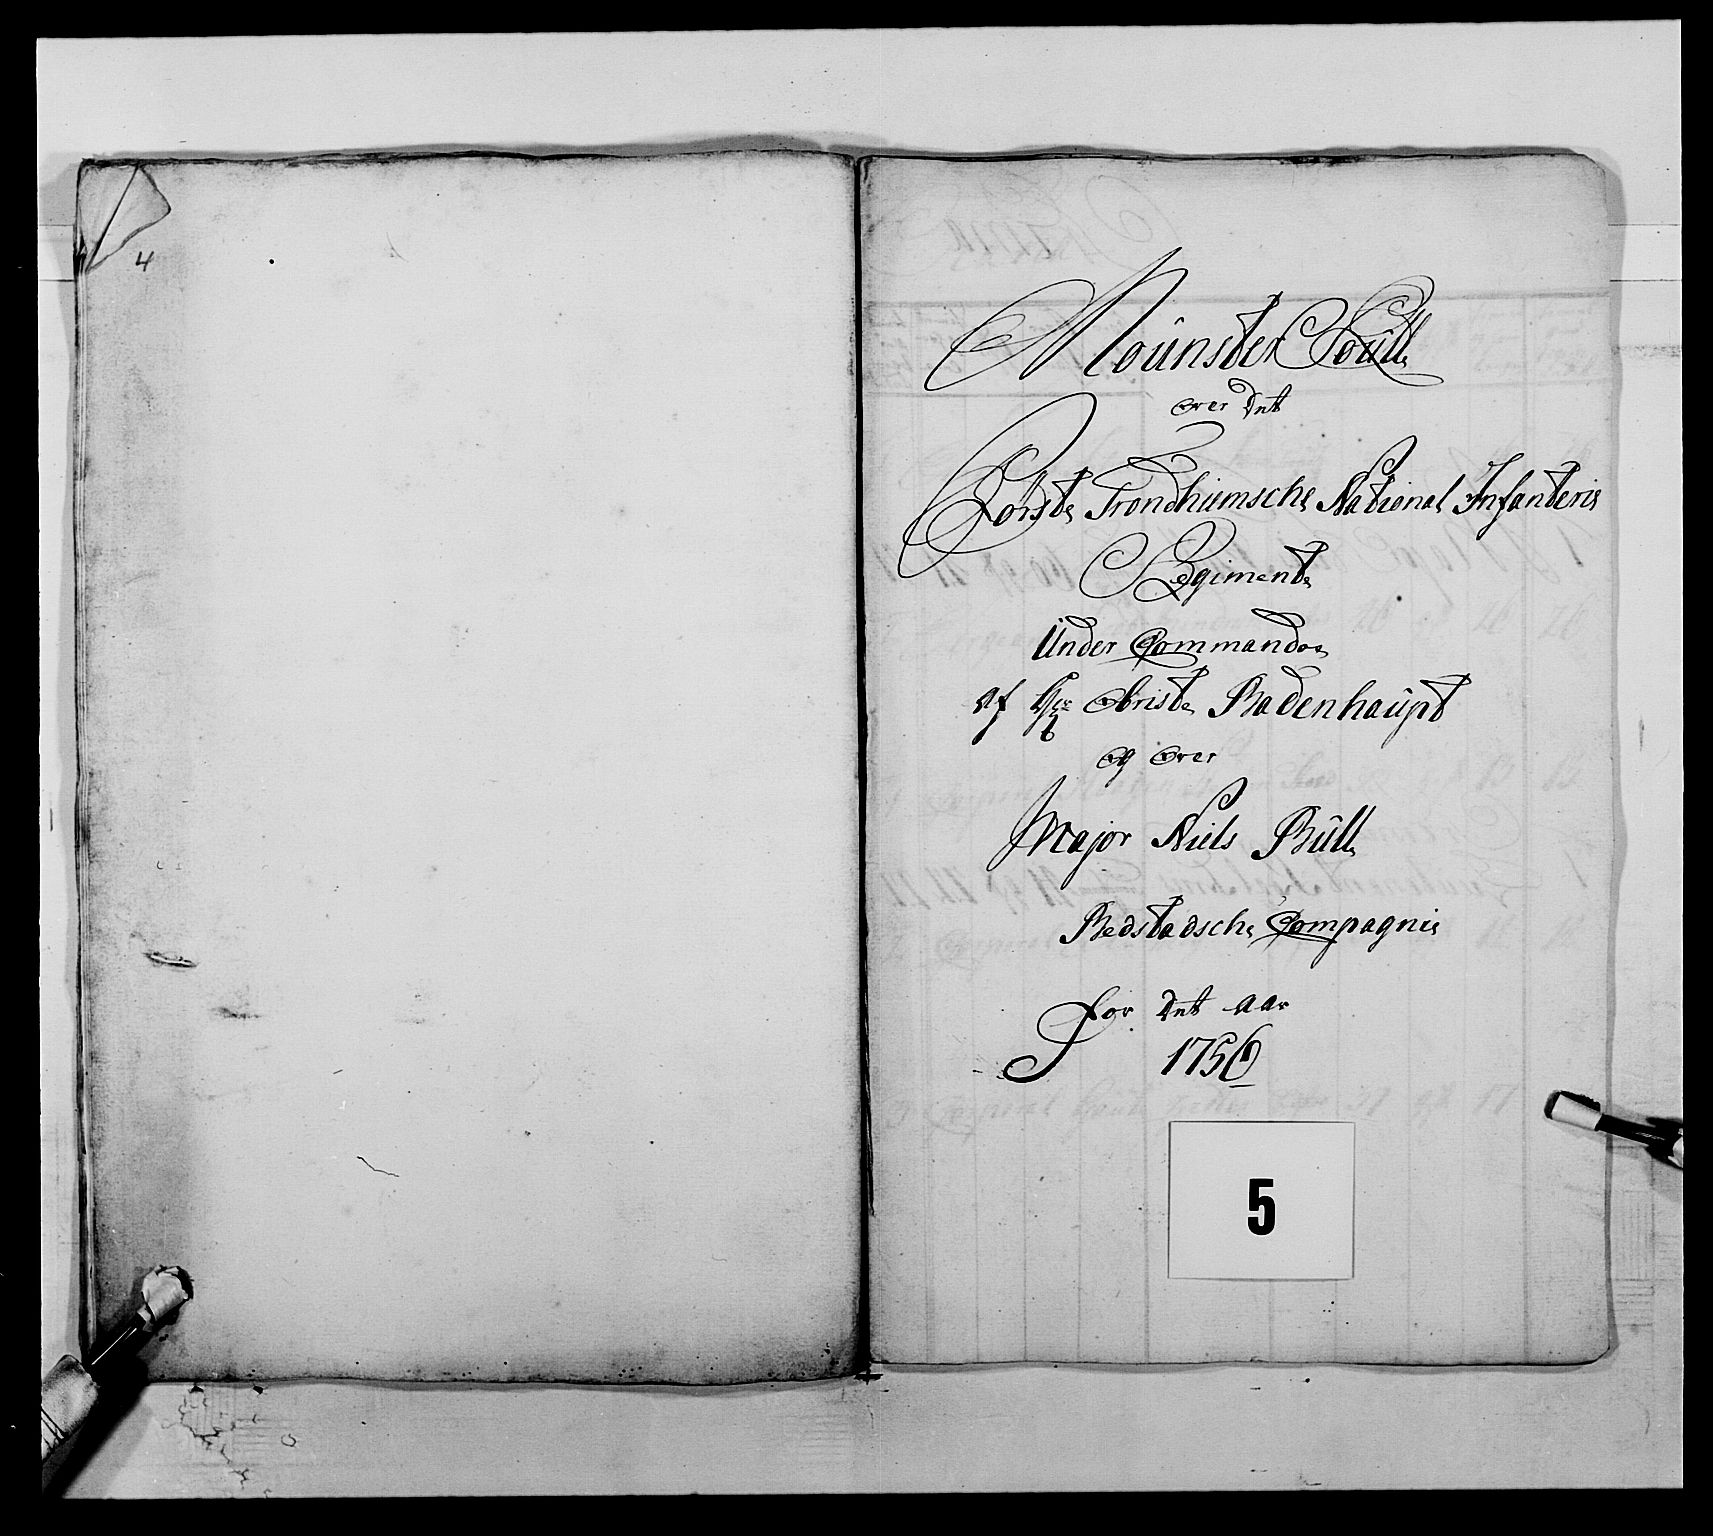 4
Moünster Roülle
over det
Förste Trondhiemsche National Infanterie
Regimente
Under Commandoe
af Hr Obriste Badenhaüpt
og over
Major Niels Bülle
Bedstadsche Compagnie
for det aar
1756
5